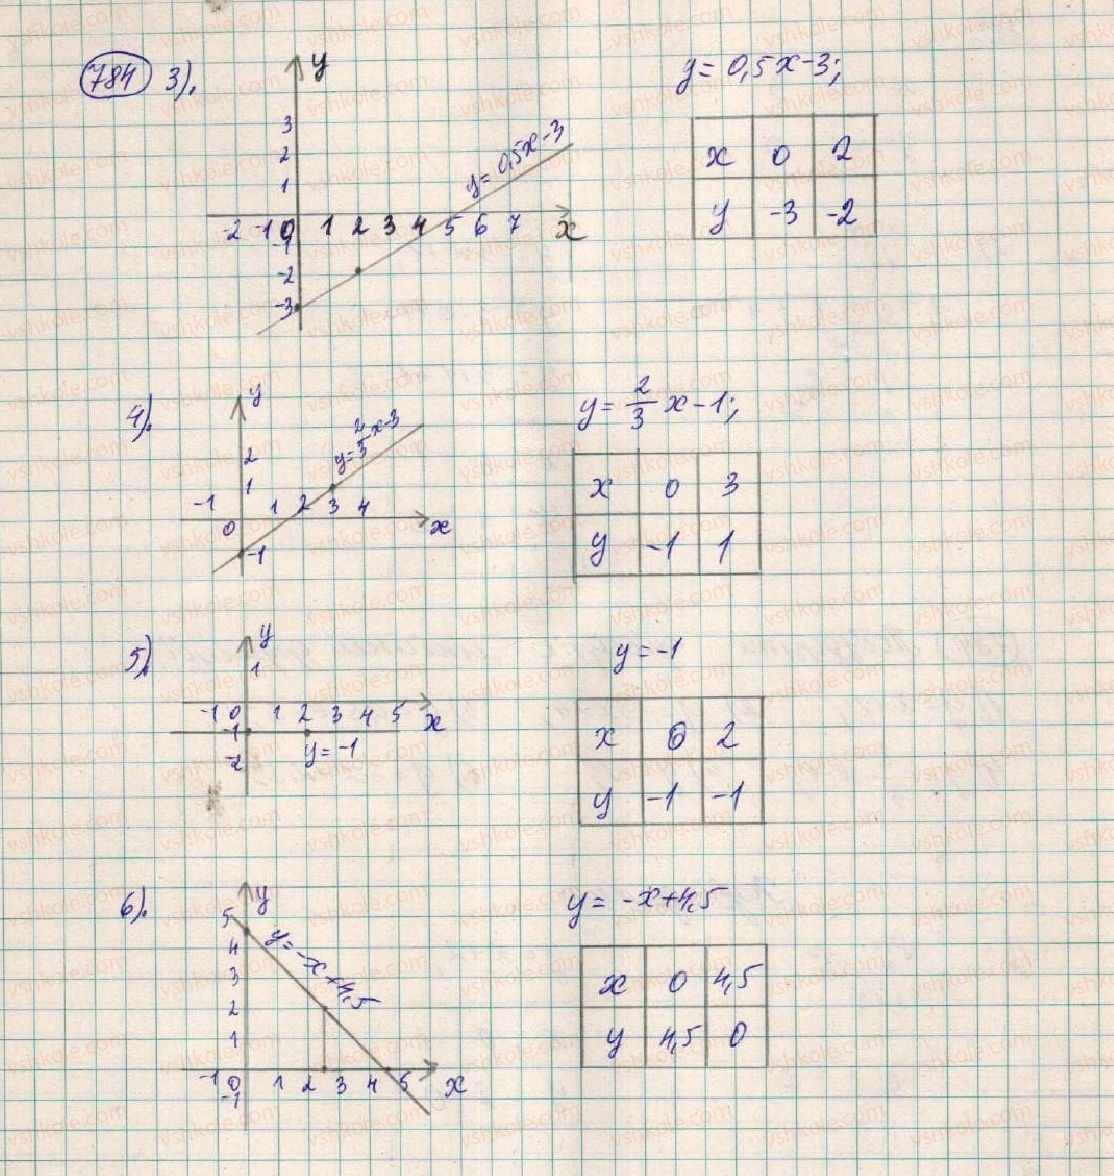 784 3).
y
y = 0,5x-3;
3
2
1
y = 0,5x-3
-2 -1 0 1 2 3 4 5 6 7 x
-1
-2
-3
x 0 2
y -3 -2
4).
y
y = 2/3 x - 1;
2
1
-1 0 1 2 3 4 x
-1
x 0 3
y -1 1
5)
y
y = -1
1
-1 0 1 2 3 4 5 x
-1
y = -1
-2
x 0 2
y -1 -1
6).
y
y = -x+4,5
5
4
3
2
1
y = -x+4,5
-1 0 1 2 3 4 5 x
-1
x 0 4,5
y 4,5 0
vshkole.com